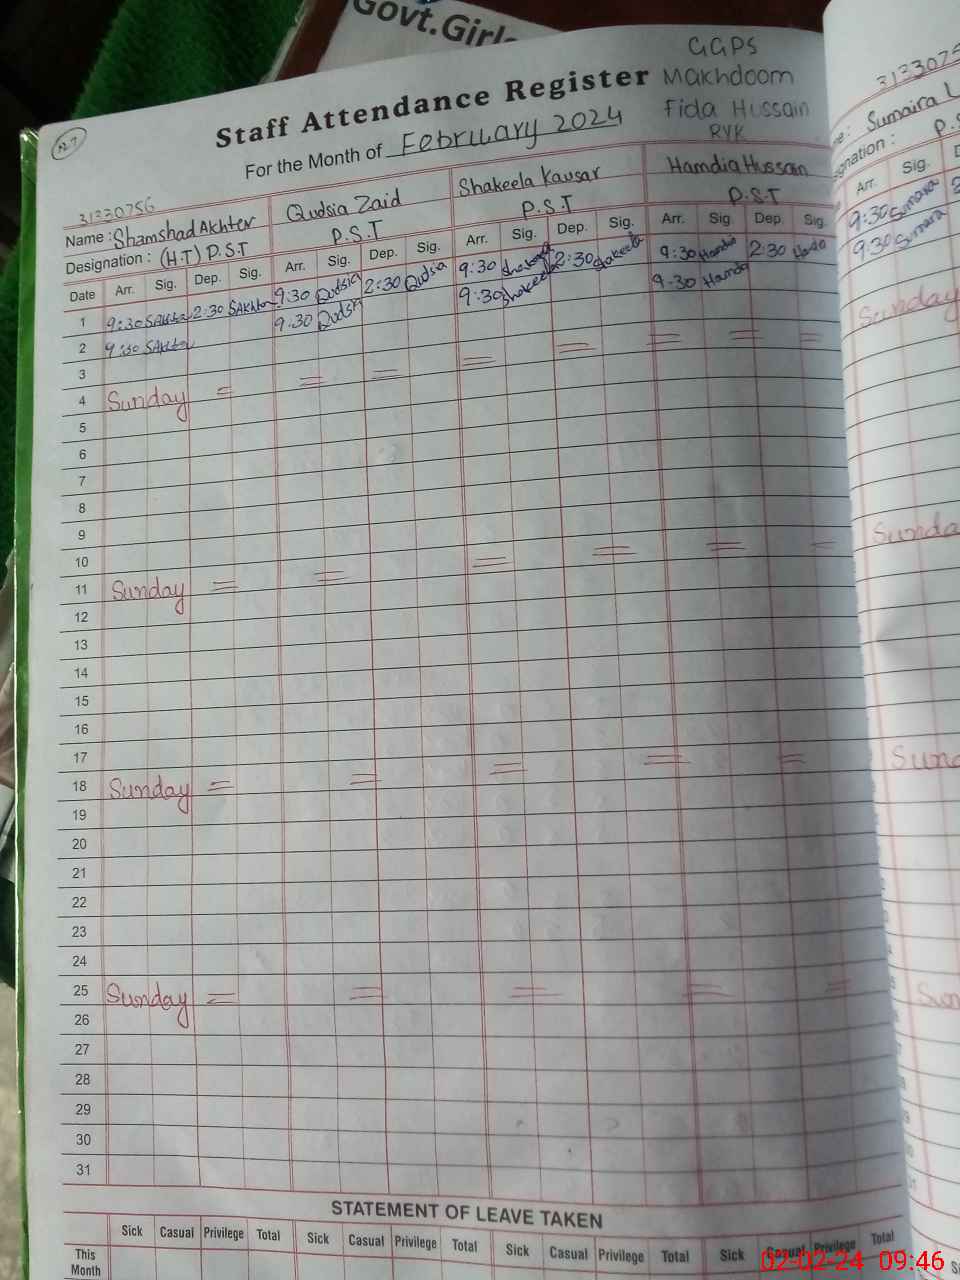 Govt.Girls
GGPS
Makhdoom
Fida Hussain
RYK
Staff Attendance Register
For the Month of February 2024
31230756
Name : Shamshad Akhter Qudsia Zaid Shakeela Kausar Hamdia Hussain
Designation : (H.T) P.S.T P.S.T P.S.T P.S.T
Date Arr. Sig. Dep. Sig. Arr. Sig. Dep. Sig. Arr. Sig. Dep. Sig. Arr. Sig. Dep. Sig.
1 9:30 SAkhter 2:30 SAkhter 9:30 Qudsia 2:30 Qudsia 9:30 Shakeela 2:30 Shakeela 9:30 Hamdia 2:30
2 9:30 SAkhter 9:30 Qudsia 9:30 Shakeela 9:30 Hamdia
3
4 Sunday = = = = = = = =
5
6
7
8
9
10
11 Sunday = = = = = =
12
13
14
15
16
17
18 Sunday = = = = =
19
20
21
22
23
24
25 Sunday = = = = =
26
27
28
29
30
31
STATEMENT OF LEAVE TAKEN
Sick Casual Privilege Total Sick Casual Privilege Total Sick Casual Privilege Total Sick Casual Privilege Total
This
Month
Sumaira
P.S
Arr. Sig.
9:30 Sumaira
9:30 Sumaira
Sunday
Sunda
Sund
Sun
02-02-24 09:46